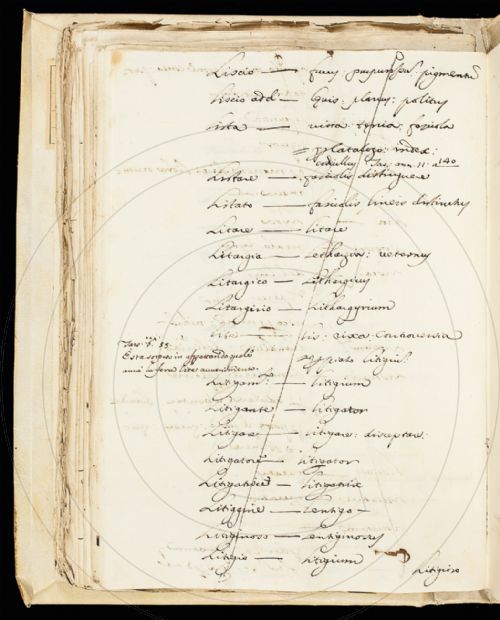 Liscio — fucus purpurissũ: pigmentũ
Liscio add — lęuis: planus: politus
Lista — vitta: tęnia: fasciola
= platalogo: index:
Tac. ann. 11. a 140
Listare — fasciolis distinguere
Listato — fasciolis lineis distinctus
Litare — litare
Litargia — lethargus: ueternus
Litargico — Lethargicus
Litargirio — Lithargyrium
Lite — lis: rixa: Controuersia
Tass. 55
Litigam.to — litigium
Litigante — litigator
Litigare — litigare: disceptare:
Litigatore — litigator
Litigatrice — litigatrix
Litiggine — lentigo —
Litiginoso — lentiginosus
Litigio — litigium
Litigioso